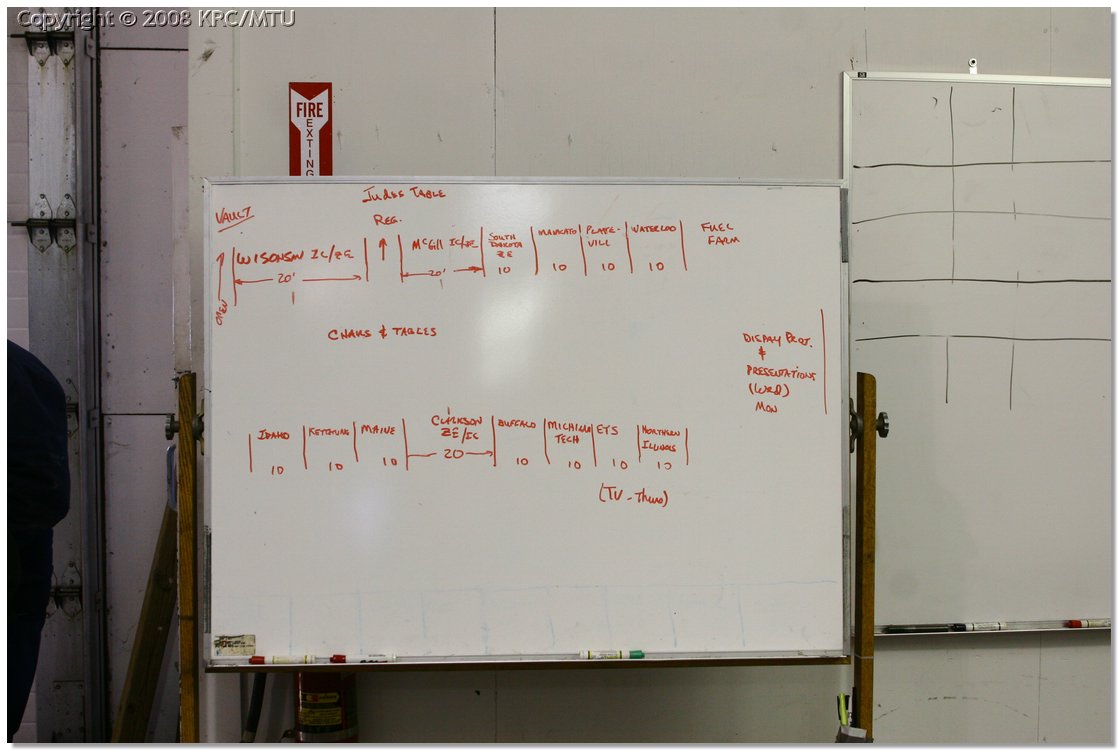 Copyright © 2008 KRC/MTU
FIRE
EXTING
JUDES TABLE
VAULT
REG.
WISONSIN IC/ZE
20'
McGill IC/ZE
20'
SOUTH
DAKOTA
ZE
10
MANKATO
10
PLATE-
VILL
10
WATERLOO
10
FUEL
FARM
OPEN
CHAIRS & TABLES
DISPAY PROJ.
&
PRESENTATIONS
(WED)
MON
IDAHO
10
KETTERING
10
MAINE
10
CLARKSON
ZE/IC
20
BUFFALO
10
MICHIGAN
TECH
10
ETS
10
NORTHERN
ILLINOIS
10
(TV - Thurs)